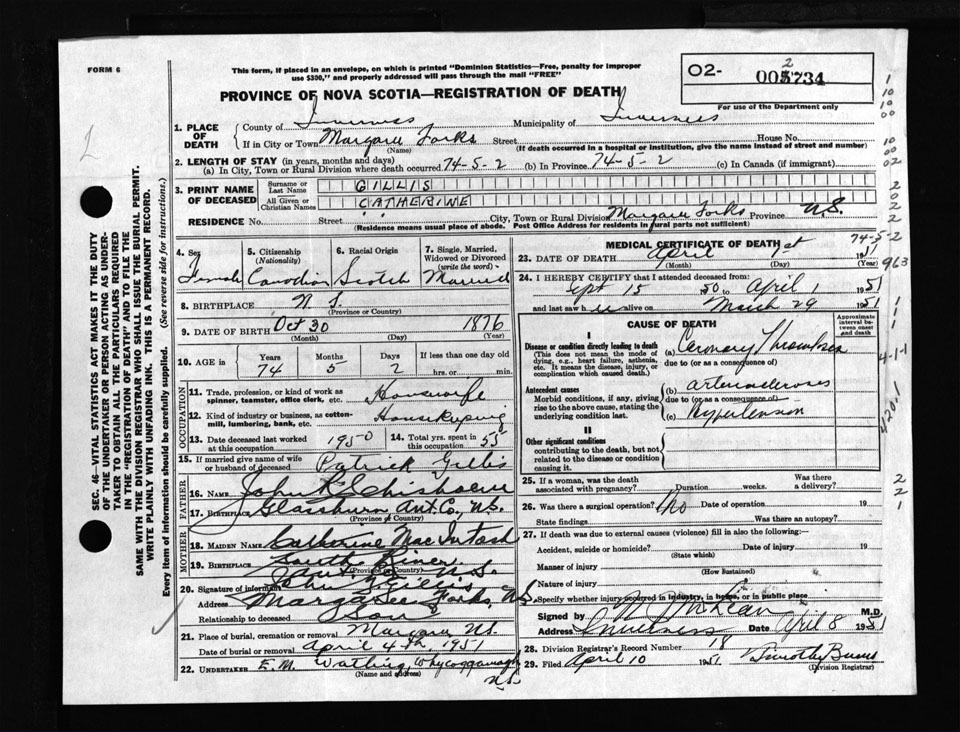 FORM 6
This form, if placed in an envelope, on which is printed "Dominion Statistics—Free, penalty for improper
use $300," and properly addressed will pass through the mail "FREE"
O2- 005734
2
For use of the Department only
PROVINCE OF NOVA SCOTIA—REGISTRATION OF DEATH
SEC. 46—VITAL STATISTICS ACT MAKES IT THE DUTY
OF THE UNDERTAKER OR PERSON ACTING AS UNDER-
TAKER TO OBTAIN ALL THE PARTICULARS REQUIRED
IN THE "REGISTRATION OF DEATH" AND TO FILE THE
SAME WITH THE DIVISION REGISTRAR WHO SHALL ISSUE THE BURIAL PERMIT.
WRITE PLAINLY WITH UNFADING INK. THIS IS A PERMANENT RECORD.
Every item of information should be carefully supplied. (See reverse side for instructions.)
1. PLACE OF DEATH { County of Inverness Municipality of Inverness
If in City or Town Margaree Forks Street House No.
(Name) (If death occurred in a hospital or institution, give the name instead of street and number)
2. LENGTH OF STAY (in years, months and days)
(a) In City, Town or Rural Division where death occurred 74-5-2 (b) In Province 74-5-2 (c) In Canada (if immigrant)
3. PRINT NAME OF DECEASED { Surname or Last Name GILLIS
All Given or Christian Names CATHERINE
RESIDENCE No. Street City, Town or Rural Division Margaree Forks Province N.S.
(Residence means usual place of abode. Post Office Address for residents in rural parts not sufficient)
4. Sex Female
5. Citizenship (Nationality) Canadian
6. Racial Origin Scotch
7. Single, Married, Widowed or Divorced (write the word) Married
8. BIRTHPLACE N.S.
(Province or Country)
9. DATE OF BIRTH Oct 30 1876
(Month) (Day) (Year)
10. AGE in { Years 74 Months 5 Days 2 If less than one day old
hrs. or min.
OCCUPATION
11. Trade, profession, or kind of work as spinner, teamster, office clerk, etc. Housewife
12. Kind of industry or business, as cotton-mill, lumbering, bank, etc. Housekeeping
13. Date deceased last worked at this occupation 1950 14. Total yrs. spent in this occupation 55
15. If married give name of wife or husband of deceased Patrick Gillis
FATHER
16. NAME John K Chisholm
17. BIRTHPLACE Glassburn Ant. Co., N.S.
(Province or Country)
MOTHER
18. MAIDEN NAME Catherine MacIntosh
19. BIRTHPLACE South River
Ant. N.S.
(Province or Country)
20. Signature of informant John Y Gillis
Address Margaree Forks, N.S.
Relationship to deceased Son
21. Place of burial, cremation or removal Margaree N.S.
Date of burial, cremation or removal April 4th, 1951
22. UNDERTAKER E.M. Whycocomagh
N.S.
(Name and address)
MEDICAL CERTIFICATE OF DEATH
74-5-2
23. DATE OF DEATH April 1st 1951
(Month) (Day) (Year)
963
24. I HEREBY CERTIFY that I attended deceased from:
Sept 15 1950 to April 1 1951
and last saw her alive on March 29 1951
CAUSE OF DEATH
Approximate interval between onset and death
Disease or condition directly leading to death
(This does not mean the mode of dying, e.g., heart failure, asthenia, etc. It means the disease, injury, or complication which caused death.)
(a) Coronary Thrombosis
due to (or as a consequence of)
Antecedent causes
Morbid conditions, if any, giving rise to the above cause, stating the underlying condition last.
(b) arteriosclerosis
due to (or as a consequence of)
(c) Hypertension
II
Other significant conditions
contributing to the death, but not related to the disease or condition causing it.
4-1-1
4201
25. If a woman, was the death associated with pregnancy? Duration weeks. Was there a delivery?
26. Was there a surgical operation? No Date of operation 19
State findings Was there an autopsy?
27. If death was due to external causes (violence) fill in also the following:—
Accident, suicide or homicide? Date of injury 19
(State which)
Manner of injury
(How Sustained)
Nature of injury
Specify whether injury occurred in industry, in home, or in public place
Signed by M.D.
Address Inverness Date April 8 1951
28. Division Registrar's Record Number 18
29. Filed April 10 1951 Timothy
(Division Registrar)